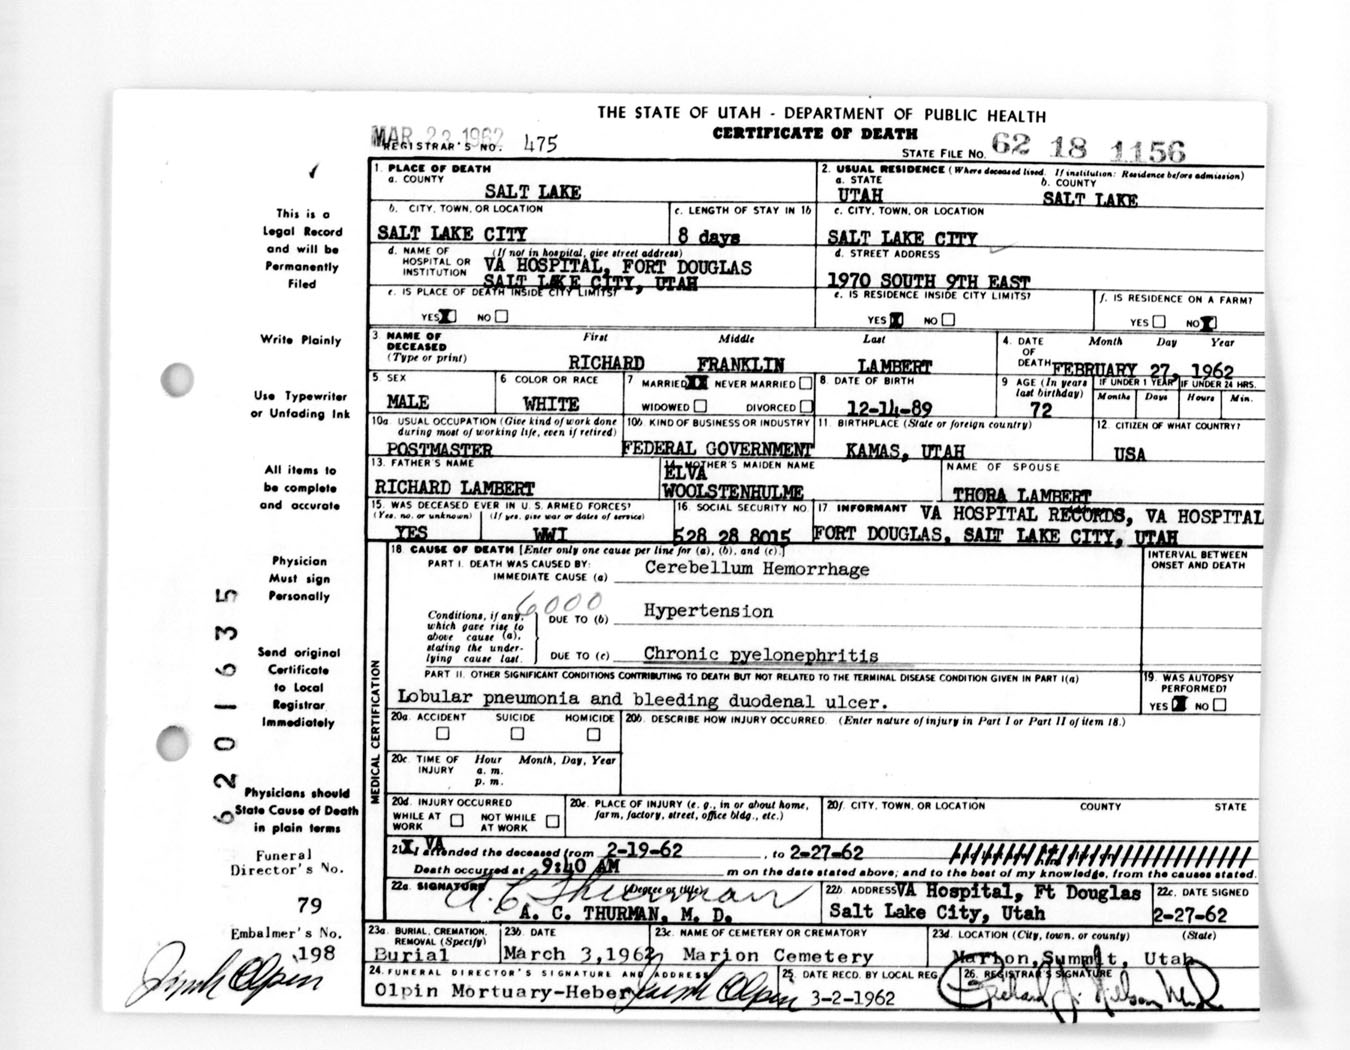 THE STATE OF UTAH - DEPARTMENT OF PUBLIC HEALTH
CERTIFICATE OF DEATH
MAR 22 1962
REGISTRAR'S NO. 475
STATE FILE NO. 62 18 1156
This is a
Legal Record
and will be
Permanently
Filed
Write Plainly
Use Typewriter
or Unfading Ink
All items to
be complete
and accurate
Physician
Must sign
Personally
Send original
Certificate
to Local
Registrar
Immediately
Physicians should
State Cause of Death
in plain terms
6201635
Funeral
Director's No.
79
Embalmer's No.
198
1. PLACE OF DEATH
a. COUNTY
SALT LAKE
2. USUAL RESIDENCE (Where deceased lived. If institution: Residence before admission)
a. STATE
UTAH
b. COUNTY
SALT LAKE
b. CITY, TOWN, OR LOCATION
SALT LAKE CITY
c. LENGTH OF STAY IN 1b
8 days
c. CITY, TOWN, OR LOCATION
SALT LAKE CITY
d. NAME OF HOSPITAL OR INSTITUTION (If not in hospital, give street address)
VA HOSPITAL, FORT DOUGLAS
SALT LAKE CITY, UTAH
d. STREET ADDRESS
1970 SOUTH 9TH EAST
e. IS PLACE OF DEATH INSIDE CITY LIMITS?
YES X NO
e. IS RESIDENCE INSIDE CITY LIMITS?
YES X NO
f. IS RESIDENCE ON A FARM?
YES NO X
3. NAME OF DECEASED (Type or print)
First Middle Last
RICHARD FRANKLIN LAMBERT
4. DATE OF DEATH
Month Day Year
FEBRUARY 27, 1962
5. SEX
MALE
6. COLOR OR RACE
WHITE
7. MARRIED X NEVER MARRIED
WIDOWED DIVORCED
8. DATE OF BIRTH
12-14-89
9. AGE (In years last birthday)
72
IF UNDER 1 YEAR IF UNDER 24 HRS.
Months Days Hours Min.
10a. USUAL OCCUPATION (Give kind of work done during most of working life, even if retired)
POSTMASTER
10b. KIND OF BUSINESS OR INDUSTRY
FEDERAL GOVERNMENT
11. BIRTHPLACE (State or foreign country)
KAMAS, UTAH
12. CITIZEN OF WHAT COUNTRY?
USA
13. FATHER'S NAME
RICHARD LAMBERT
14. MOTHER'S MAIDEN NAME
ELVA
WOOLSTENHULME
NAME OF SPOUSE
THORA LAMBERT
15. WAS DECEASED EVER IN U.S. ARMED FORCES?
(Yes, no, or unknown) (If yes, give war or dates of service)
YES WWI
16. SOCIAL SECURITY NO.
528 28 8015
17. INFORMANT VA HOSPITAL RECORDS, VA HOSPITAL
FORT DOUGLAS, SALT LAKE CITY, UTAH
MEDICAL CERTIFICATION
18. CAUSE OF DEATH [Enter only one cause per line for (a), (b), and (c).]
INTERVAL BETWEEN
ONSET AND DEATH
PART I. DEATH WAS CAUSED BY:
IMMEDIATE CAUSE (a) Cerebellum Hemorrhage
6000
Conditions, if any, which gave rise to above cause (a), stating the underlying cause last.
DUE TO (b) Hypertension
DUE TO (c) Chronic pyelonephritis
PART II. OTHER SIGNIFICANT CONDITIONS CONTRIBUTING TO DEATH BUT NOT RELATED TO THE TERMINAL DISEASE CONDITION GIVEN IN PART I(a)
Lobular pneumonia and bleeding duodenal ulcer.
19. WAS AUTOPSY PERFORMED?
YES X NO
20a. ACCIDENT SUICIDE HOMICIDE
20b. DESCRIBE HOW INJURY OCCURRED. (Enter nature of injury in Part I or Part II of item 18.)
20c. TIME OF INJURY
Hour Month, Day, Year
a. m.
p. m.
20d. INJURY OCCURRED
WHILE AT WORK NOT WHILE AT WORK
20e. PLACE OF INJURY (e. g., in or about home, farm, factory, street, office bldg., etc.)
20f. CITY, TOWN, OR LOCATION COUNTY STATE
21. VA attended the deceased from 2-19-62, to 2-27-62
Death occurred at 9:40 AM m on the date stated above; and to the best of my knowledge, from the causes stated.
22a. SIGNATURE (Degree or title)
A. C. Thurman
A. C. THURMAN, M. D.
22b. ADDRESS VA Hospital, Ft Douglas
Salt Lake City, Utah
22c. DATE SIGNED
2-27-62
23a. BURIAL, CREMATION, REMOVAL (Specify)
Burial
23b. DATE
March 3, 1962
23c. NAME OF CEMETERY OR CREMATORY
Marion Cemetery
23d. LOCATION (City, town, or county) (State)
Marion, Summit, Utah
24. FUNERAL DIRECTOR'S SIGNATURE AND ADDRESS
Olpin Mortuary-Heber
25. DATE RECD. BY LOCAL REG.
3-2-1962
26. REGISTRAR'S SIGNATURE